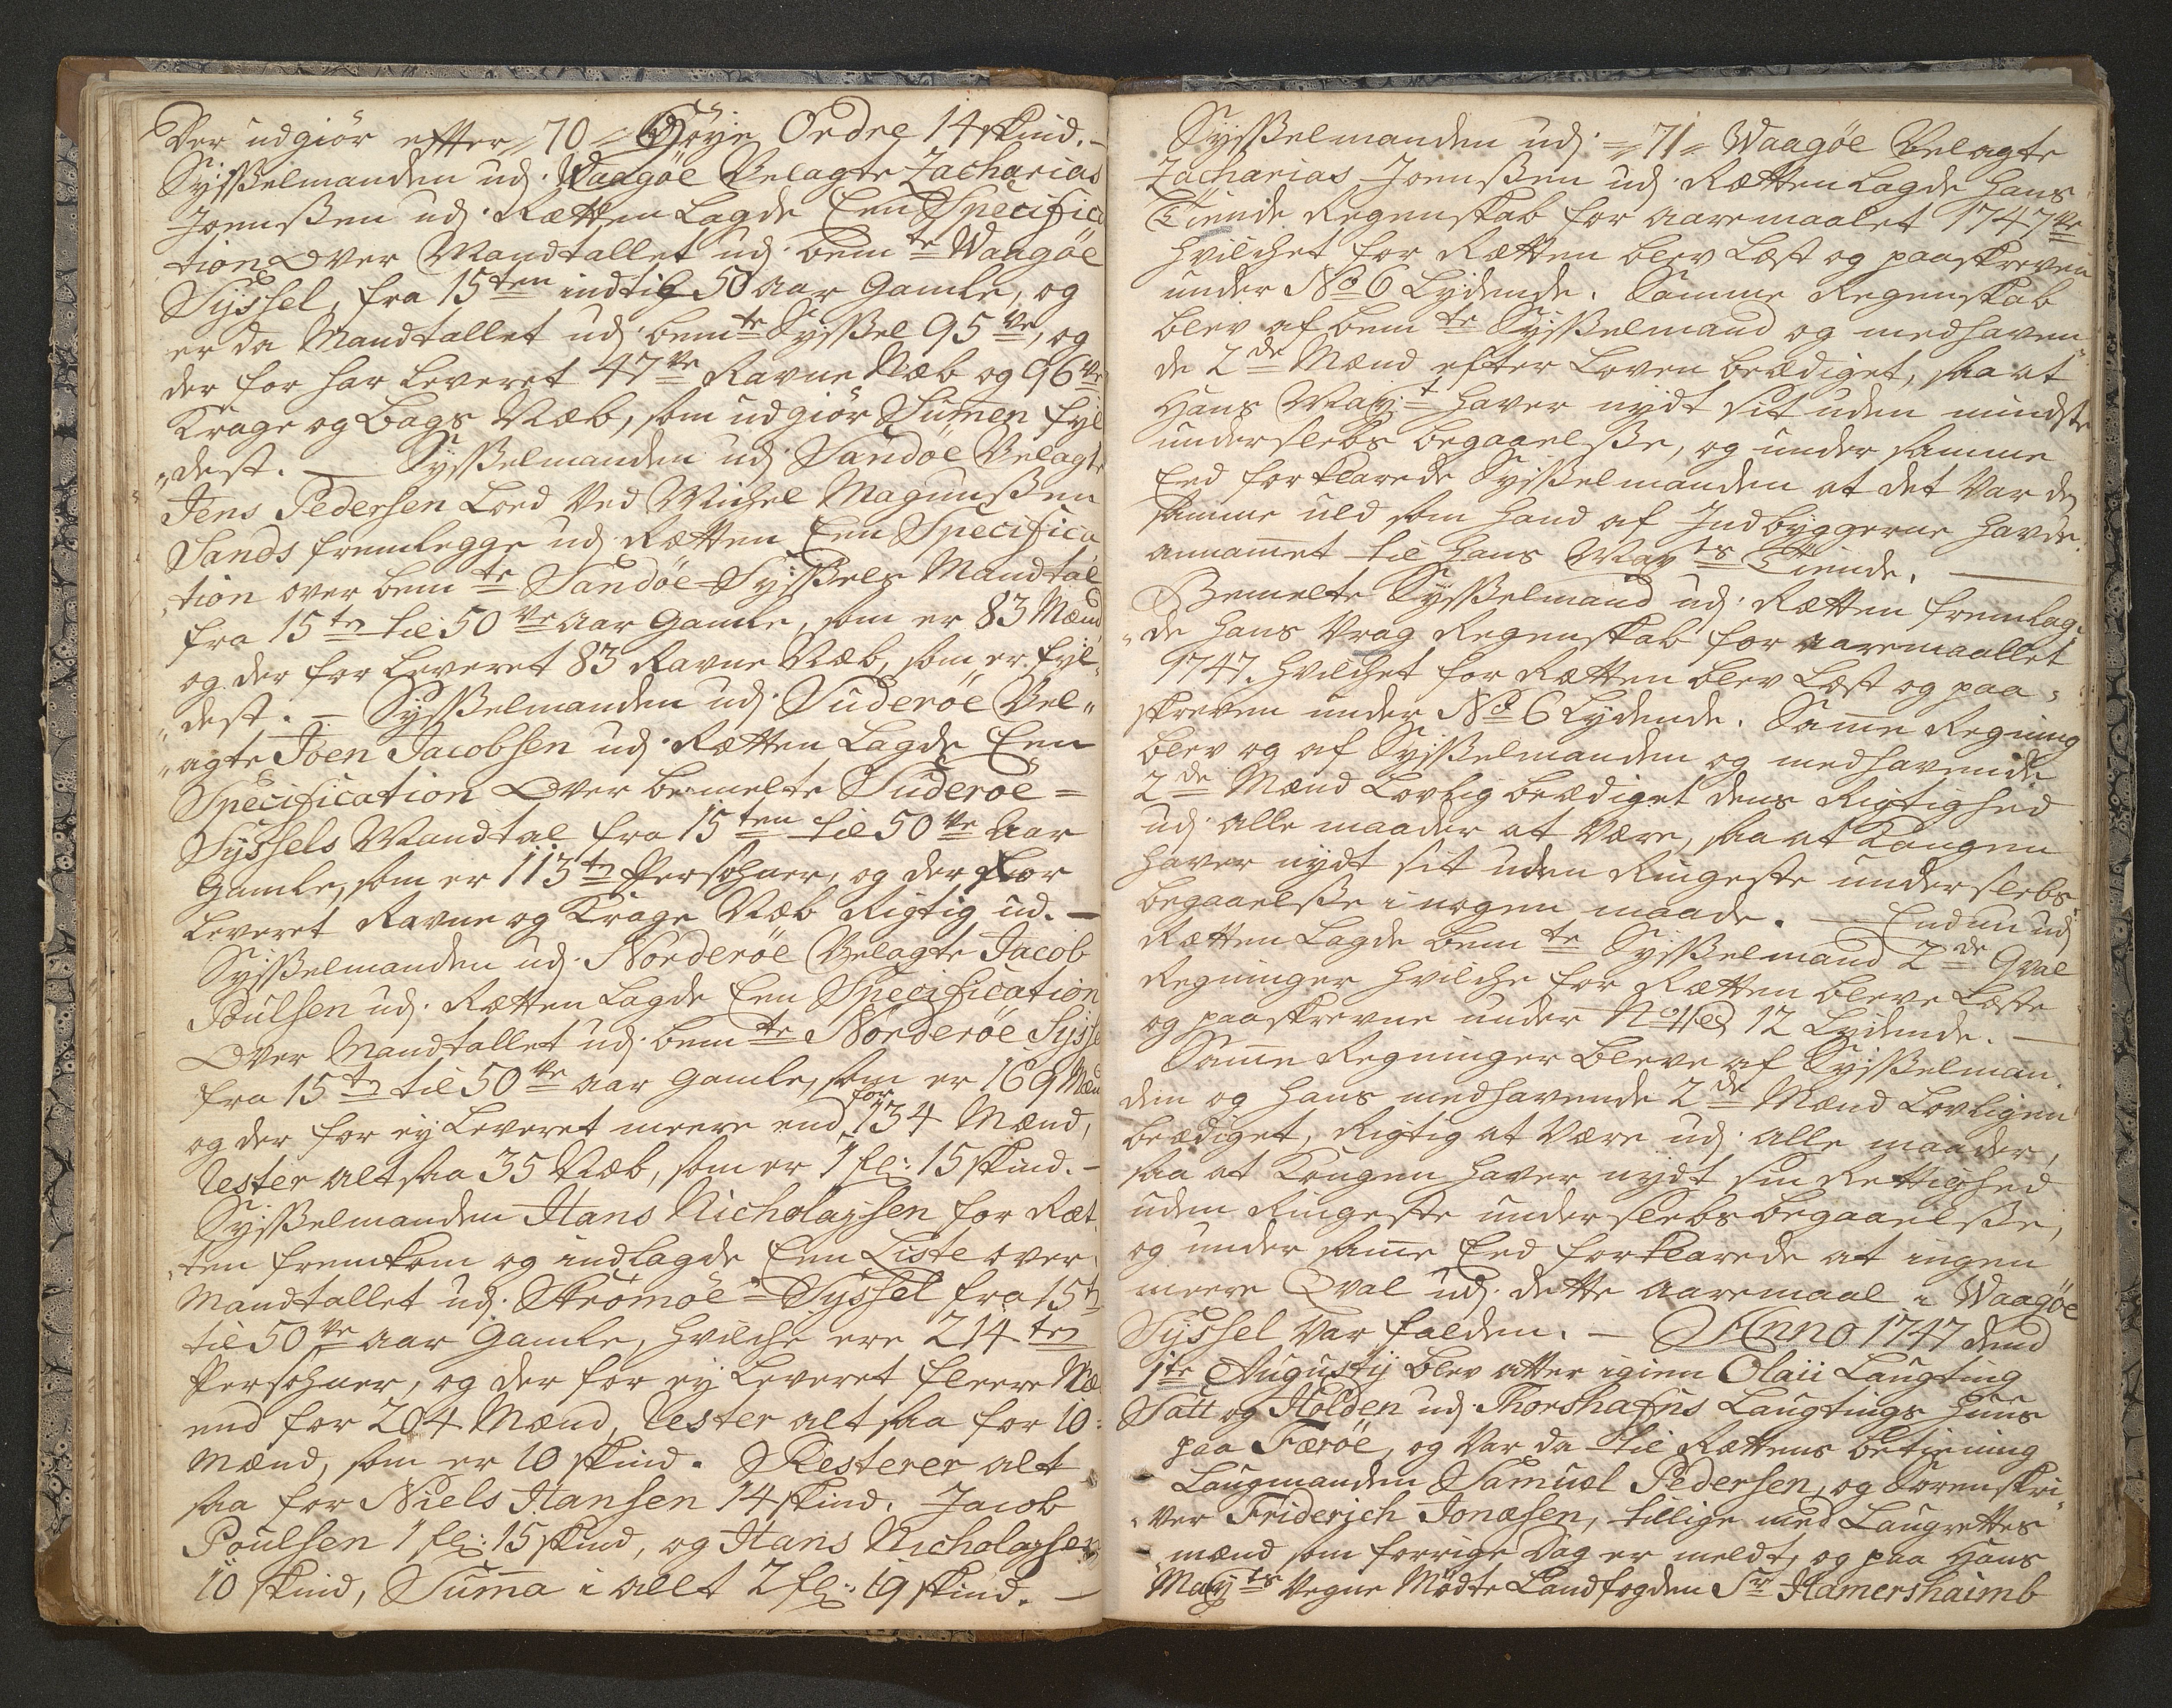 der udgiör efter 70 Høye Ordre 14 skind. –
Sysselmanden udj Waagöe Velagte Zacharias
Joenssen udj Rætten Lagde Een Specifica
tion Over Mandtallet udj bem.te Waagöe
Syssel, fra 15ten indtil 50 Aar Gamle, og
er da Mandtallet udj bem.te Syssel 95ve, og
der for har Leveret 47ve Ravne Næb og 96ve
Krage og Bags Næb, som udgiör Sumen fyl
dest. – Sysselmanden udj Sandöe Velagte
Jens Pedersen Loed Ved Michel Magnussen
Sands fremlegge udj Rætten Een Specifica
tion over bem.te Sandöe Syssels Mandtal
fra 15ten til 50ve Aar Gamle, som er 83 Mænd
og der for Leveret 83 Ravne Næb, som er fyl
dest. – Sysselmanden udj Suderöe Vel-
agte Joen Jacobsen udj Rætten Lagde Een
Specification Over bemelte Suderöe =
Syssels Mandtal fra 15ten til 50ve Aar
Gamle, som er 113ten Persohner, og der for
Leveret Ravne og Krage Næb Rigtig ud. –
Sysselmanden udj Norderöe Velagte Jacob
Poulsen udj Rætten Lagde Een Specification
Over Mandtallet udj bem.te Norderöe Syssel
fra 15ten til 50ve Aar Gamle, som er 169 Mænd
og der for ej Leveret meere end for 134 Mænd,
Rester altsaa 35 Næb, som er 1 fl: 15 skind. –
Sysselmanden Hans Nicholajsen for Ræt
ten fremkom og indlagde Een Liste over
Mandtallet udj Strömöe Syssel fra 15ten
til 50ve Aar Gamle, hvilche ere 214ten
Persohner, og der for ej Leveret fleere Næ
end for 204 Mænd, Rester altsaa for 10
Mænd, som er 10 skind. Resterer alt
saa for Niels Hansen 14 skind. Jacob
Poulsen 1 fl: 15 skind, og Hans Nicholajsen
10 skind, Suma i alt 2 fl: 19 skind. –
Sysselmanden udj 71 Waagöe Velagte
Zacharias Joenssen udj Rætten Lagde hans
Tiende Regenskab for Aaremaalet 1747ve
hvilchet for Rætten blev Læst og paaskreven
under No 6 Lydende. Samme Regenskab
blev af bem.te Sysselmand og medhaven
de 2de Mænd efter Loven beædiget, saa at
Hans May.t haver nydt sit uden mindste
underslebs begaaelsse, og under samme
Eed forklarede Sysselmanden at det Var dend
samme uld som hand af Indbyggerne havde
annamet til Hans May.ts Tiende. –
Bemelte Sysselmand udj Rætten fremlag
de hans Vrag Regenskab for Aaremaallet
1747. hvilchet for Rætten blev Læst og paa
skreven under No 6 Lydende. Same Regning
blev og af Sysselmanden og medhavende
2de Mænd Lovlig beædiget dens Rigtighed
udj alle maader at Være, saa at Kongen
haver nydt sit uden Ringeste underslebs
begaaelsse i nogen maade. – Endnu udj
Rætten Lagde bem.te Sysselmand 2de Qval
Regninger hvilche for Rætten bleve Læste
og paaskrevne under No 11 12 Lydende. –
Same Regninger bleve af Sysselman
den og hans medhavende 2de Mænd Lovligen
beædiget, Rigtig at Være udj alle maader,
saa at Kongen haver nydt sin Rettighed
uden Ringeste underslebs begaaelsse,
og under same Eed forklarede at ingen
meere Qval udj dette Aaremaal i Waagöe
Syssel Var falden. – Anno 1747 dend
1te Augustij blev atter igien Olaii Laugting
Satt og Holden udj Thorshafns Laugtings Huus
paa Færöe, og Var da til Rættens betiening
Laugmanden Samuel Pedersen, og Sorenskri
ver Friderich Jonæsen, tillige med Laugrettes
mænd som forrige Dag er meldt, og paa Hans
May.ts Vegne Mödte Landfogden Sr Hamershaimb